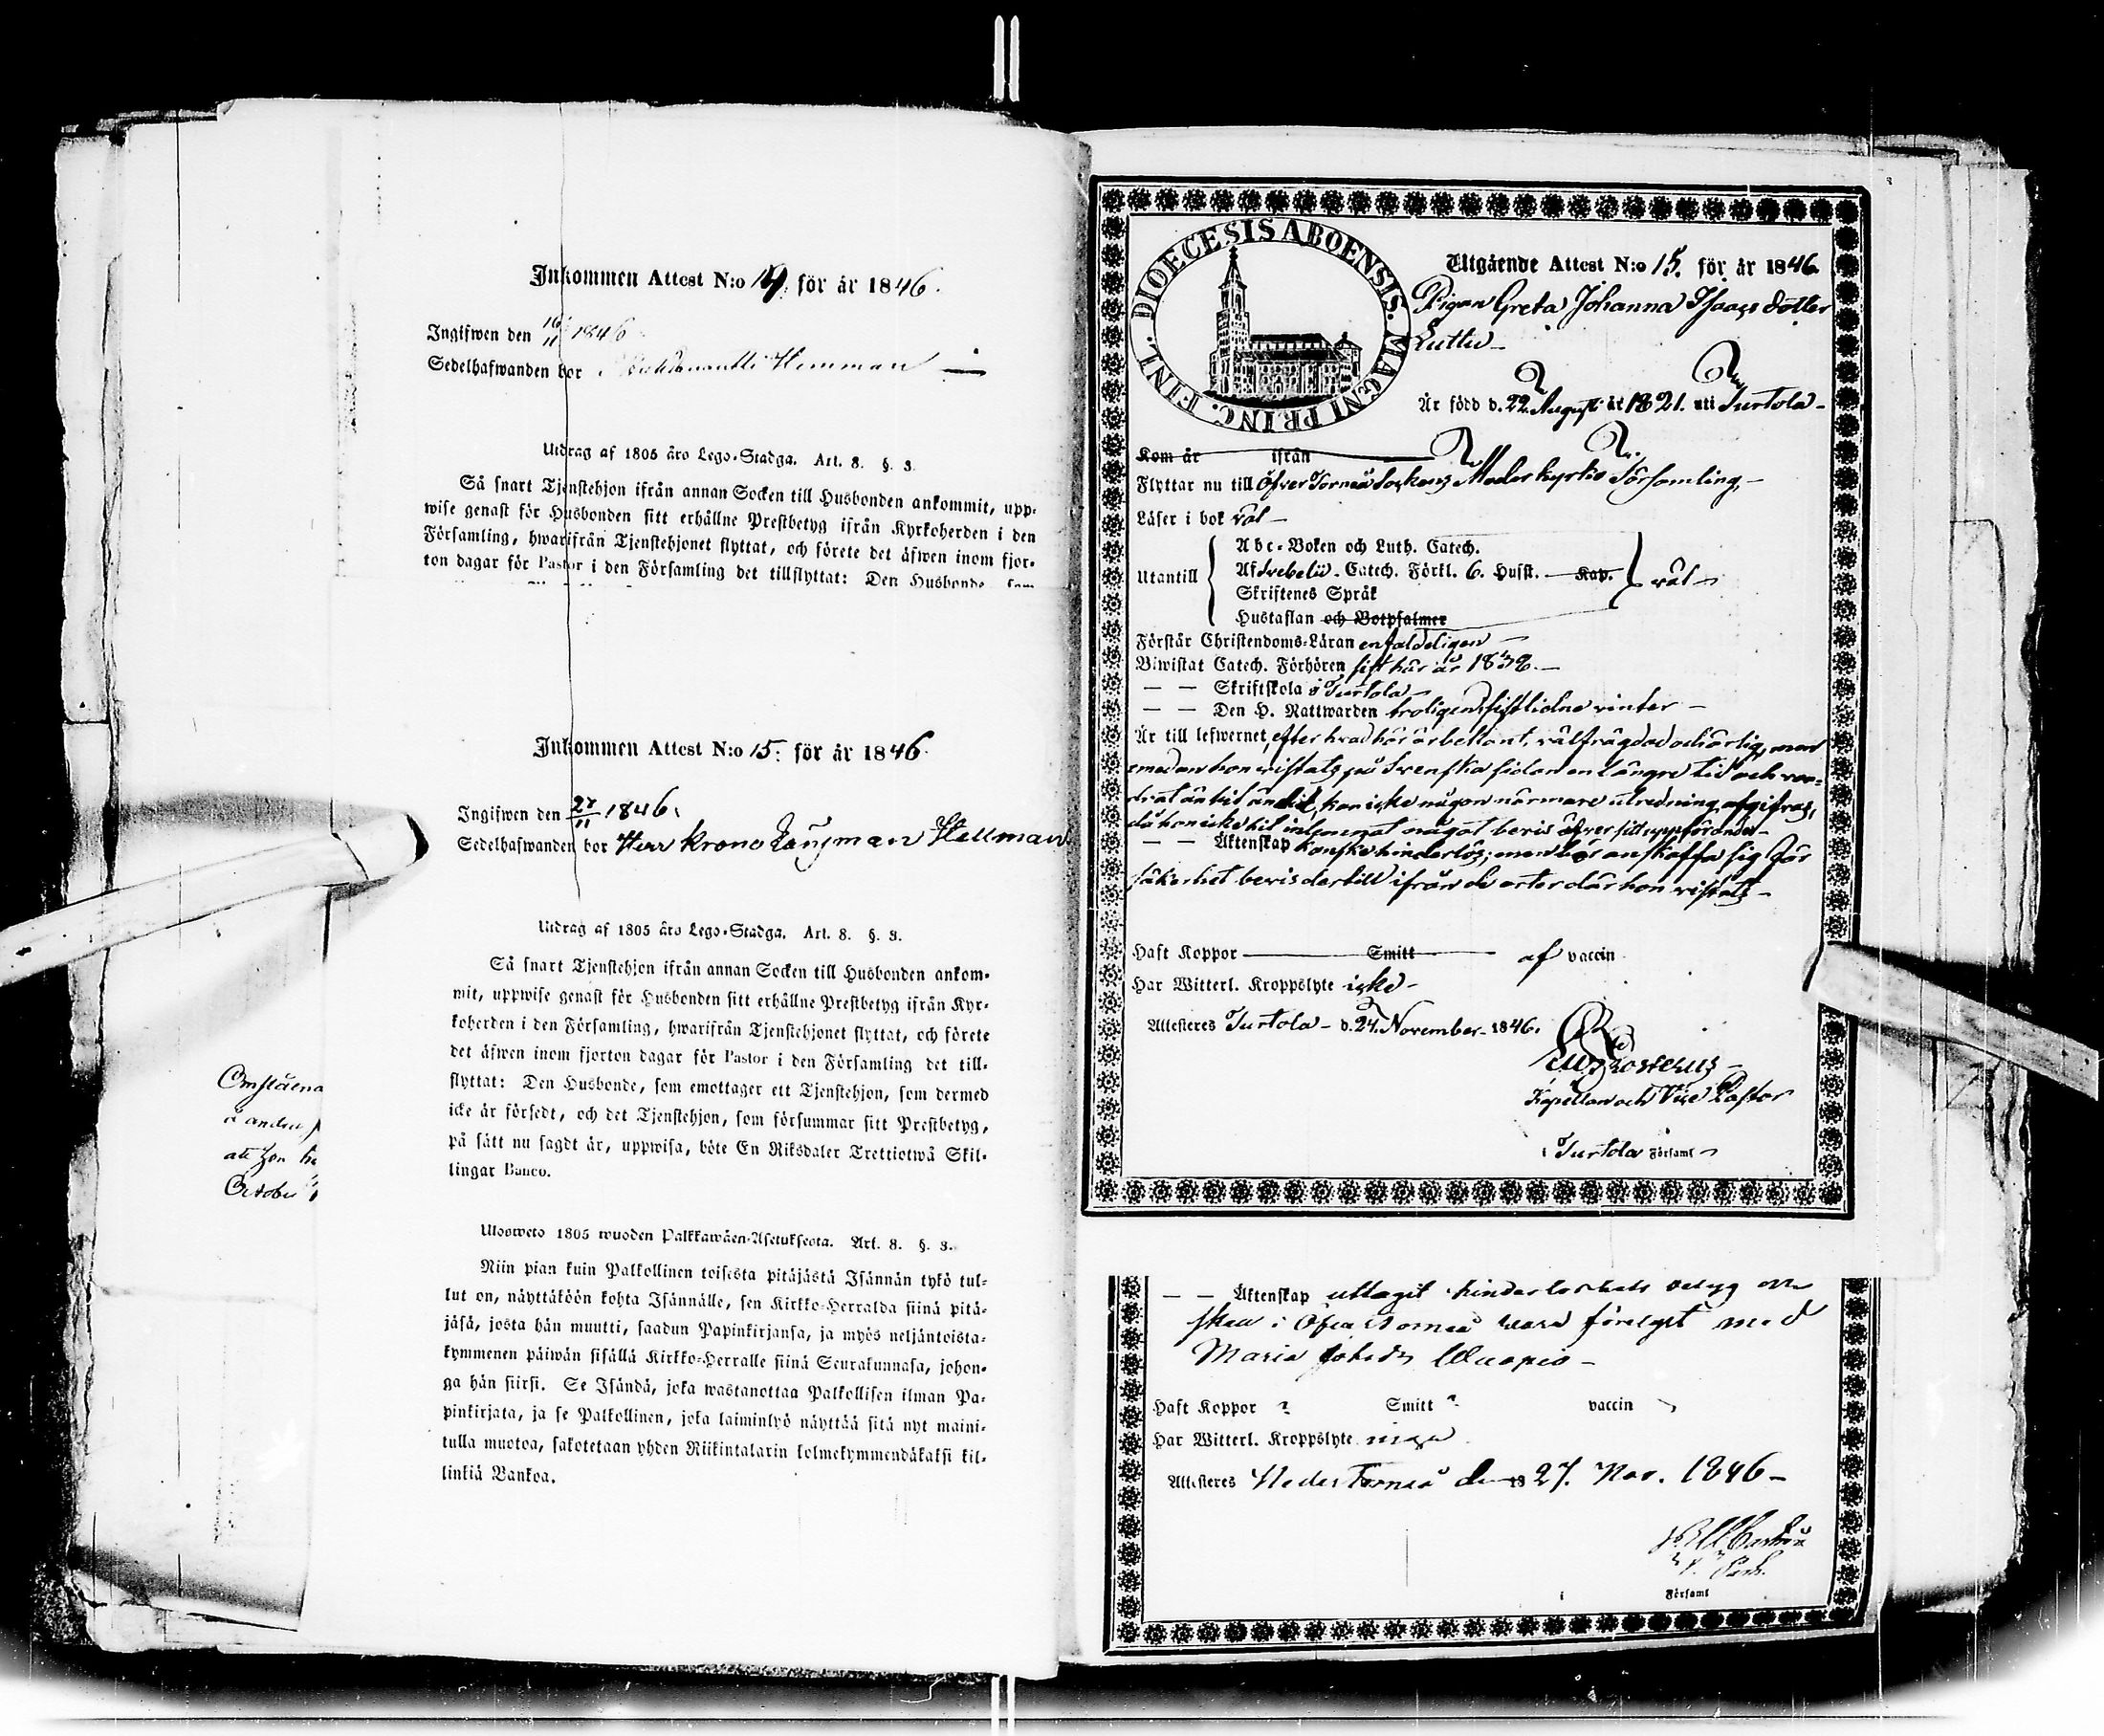 Inkommen Attest N:o 14. för år 1846.
Ingifwen den 16/11 1846
Sedelhafwanden bor Hemman
Utdrag af 1805 års Lego-Stadga. Art. 8. §. 3.
Så snart Tjenstehjon ifrån annan Socken till Husbonden ankommit, upp-
wise genast för Husbonden sitt erhållne Prestbetyg ifrån Kyrkoherden i den
Församling, hwarifrån Tjenstehjonet flyttat, och förete det äfwen inom fjor-
ton dagar för Pastor i den Församling det tillflyttat: Den Husbonde som
Inkommen Attest N:o 15. för år 1846.
Ingifwen den 27/11 1846.
Sedelhafwanden bor Herr Krono Länsman Hellman
Utdrag af 1805 års Lego-Stadga. Art. 8. §. 3.
Så snart Tjenstehjon ifrån annan Socken till Husbonden ankom-
mit, uppwise genast för Husbonden sitt erhållne Prestbetyg ifrån Kyr-
koherden i den Församling, hwarifrån Tjenstehjonet flyttat, och förete
det äfwen inom fjorton dagar för Pastor i den Församling det till-
flyttat: Den Husbonde, som emottager ett Tjenstehjon, som dermed
icke är försedt, och det Tjenstehjon, som försummar sitt Prestbetyg,
på sätt nu sagdt är, uppwisa, böte En Riksdaler Trettiotwå Skil-
lingar Banco.
Ulosweto 1805 wuoden Palkkawäen-Asetuksesta. Art. 8. §. 3.
Niin pian kuin Palkollinen toisesta pitäjästä Isännän tykö tul-
lut on, näyttäköön kohta Isännälle, sen Kirkko-Herralda siinä pitä-
jäsä, josta hän muutti, saadun Papinkirjansa, ja myös neljäntoista-
kymmenen päiwän sisällä Kirkko-Herralle siinä Seurakunnasa, johon-
ga hän siirsi. Se Isändä, joka wastanottaa Palkollisen ilman Pa-
pinkirjata, ja se Palkollinen, joka laiminlyö näyttää sitä nyt maini-
tulla muotoa, sakotetaan yhden Riikintalarin kolmekymmendäkaksi kil-
linkiä Bankoa.
Omstäena
å andra
att hon
October
DIOECESIS ABOENSIS. MAGNI PRINC. FINL.
Utgående Attest N:o 15. för år 1846.
Pigan Greta Johanna Isaacs dotter
Luttu
Är född d. 22. Augusti år 1821. uti Turtola
Kom år ifrån
Flyttar nu till Öfver Torneå Sockens Moderkyrko Församling.
Läser i bok väl
Utantill
Abc-Boken och Luth. Catech.
Af Svebelii. Catech. Förkl. 6. Hufst. Kap.
Skriftenes Språk
Hustaflan och Botpsalmer
väl
Förstår Christendoms-Läran enfaldeligen
Biwistat Catech. Förhören sist här år 1838.
— — Skriftskola i Turtola
— — Den H. Nattwarden troligen sistlidne vinter
Är till lefwernet, efter hvad här är bekant, välfrägdad och ärlig, men
emedan hon vistats på Svenska sidan en längre tid och van-
drat än hit än dit, kan icke någon närmare utredning afgifvas,
då hon icke hit inlemnat något bevis öfver sitt uppförande
— — Äktenskap kanske hinderlös; men bör anskaffa sig för
säkerhet bevis dertill ifrån de orter där hon vistats
Haft Koppor Smitt af vaccin
Har Witterl. Kroppslyte icke
Attesteres Turtola d. 24. November 1846.
Kapellan och Vice Pastor
i Turtola Församl
— — Äktenskap uttagit hinderlöshets betyg
i Öfra Torneå med
Maria
Haft Koppor ? Smitt ? vaccin
Har Witterl. Kroppslyte inga
Attesteres Neder Torneå den 18 27. Nov. 1846
i Församl